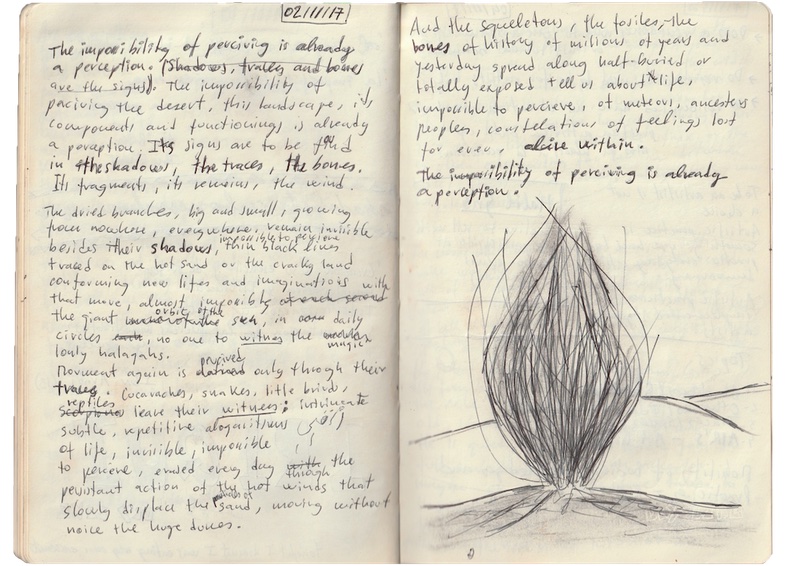 02/11/17
The imposibility of perciving is already
a perception. (Shadows, traces and bones
are the signs). The imposibility of
paciving the desert, this landscape, its
components and functionings is already
a perception. Its signs are to be find
in the shadows, the traces, the bones.
Its fragments, its remains, the wind.
The dried branches, big and small, growing
from nowhere, everywhere, remain invisible
besides their shadows, impossible to percieve
thin black lines
traced on the hot sand or the cracky land
conforming new lifes and imaginations with
that move, almost imposibly of each second
the giant orbit of the sun, in daily
circles each, no one to witnes the
magic
lonly halagahs.
Movment again is percived only through their
traces. Cucaraches, snakes, litle birds,
reptiles
scorpions leave their witness: intrincate
subtle, repetitive alogaritms
of life, invisible, imposible
to percieve, erased every day with the
through
persistant action of the hot winds that
slowly displace the sand, moving without
noice the huge dunes.
And the squeletons, the fosiles, the
bones of history of milions of years and
yesterday spread along half-buried or
totally exposed tell us about life,
impossible to percieve, of meteors, ancesters
peoples, constelations of feelings lost
for ever, alive within.
The imposibility of perciving is already
a perception.